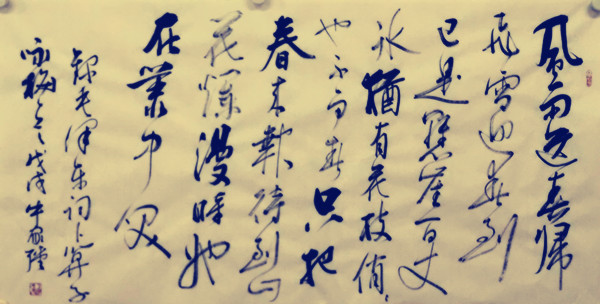 風雨送春歸
飛雪迎春到
已是懸崖百丈
冰猶有花枝俏〻
也不爭春只把
春來報待到山
花爛漫時她
在叢中笑
錄毛澤東詞卜算子
咏梅 戊戌 牛